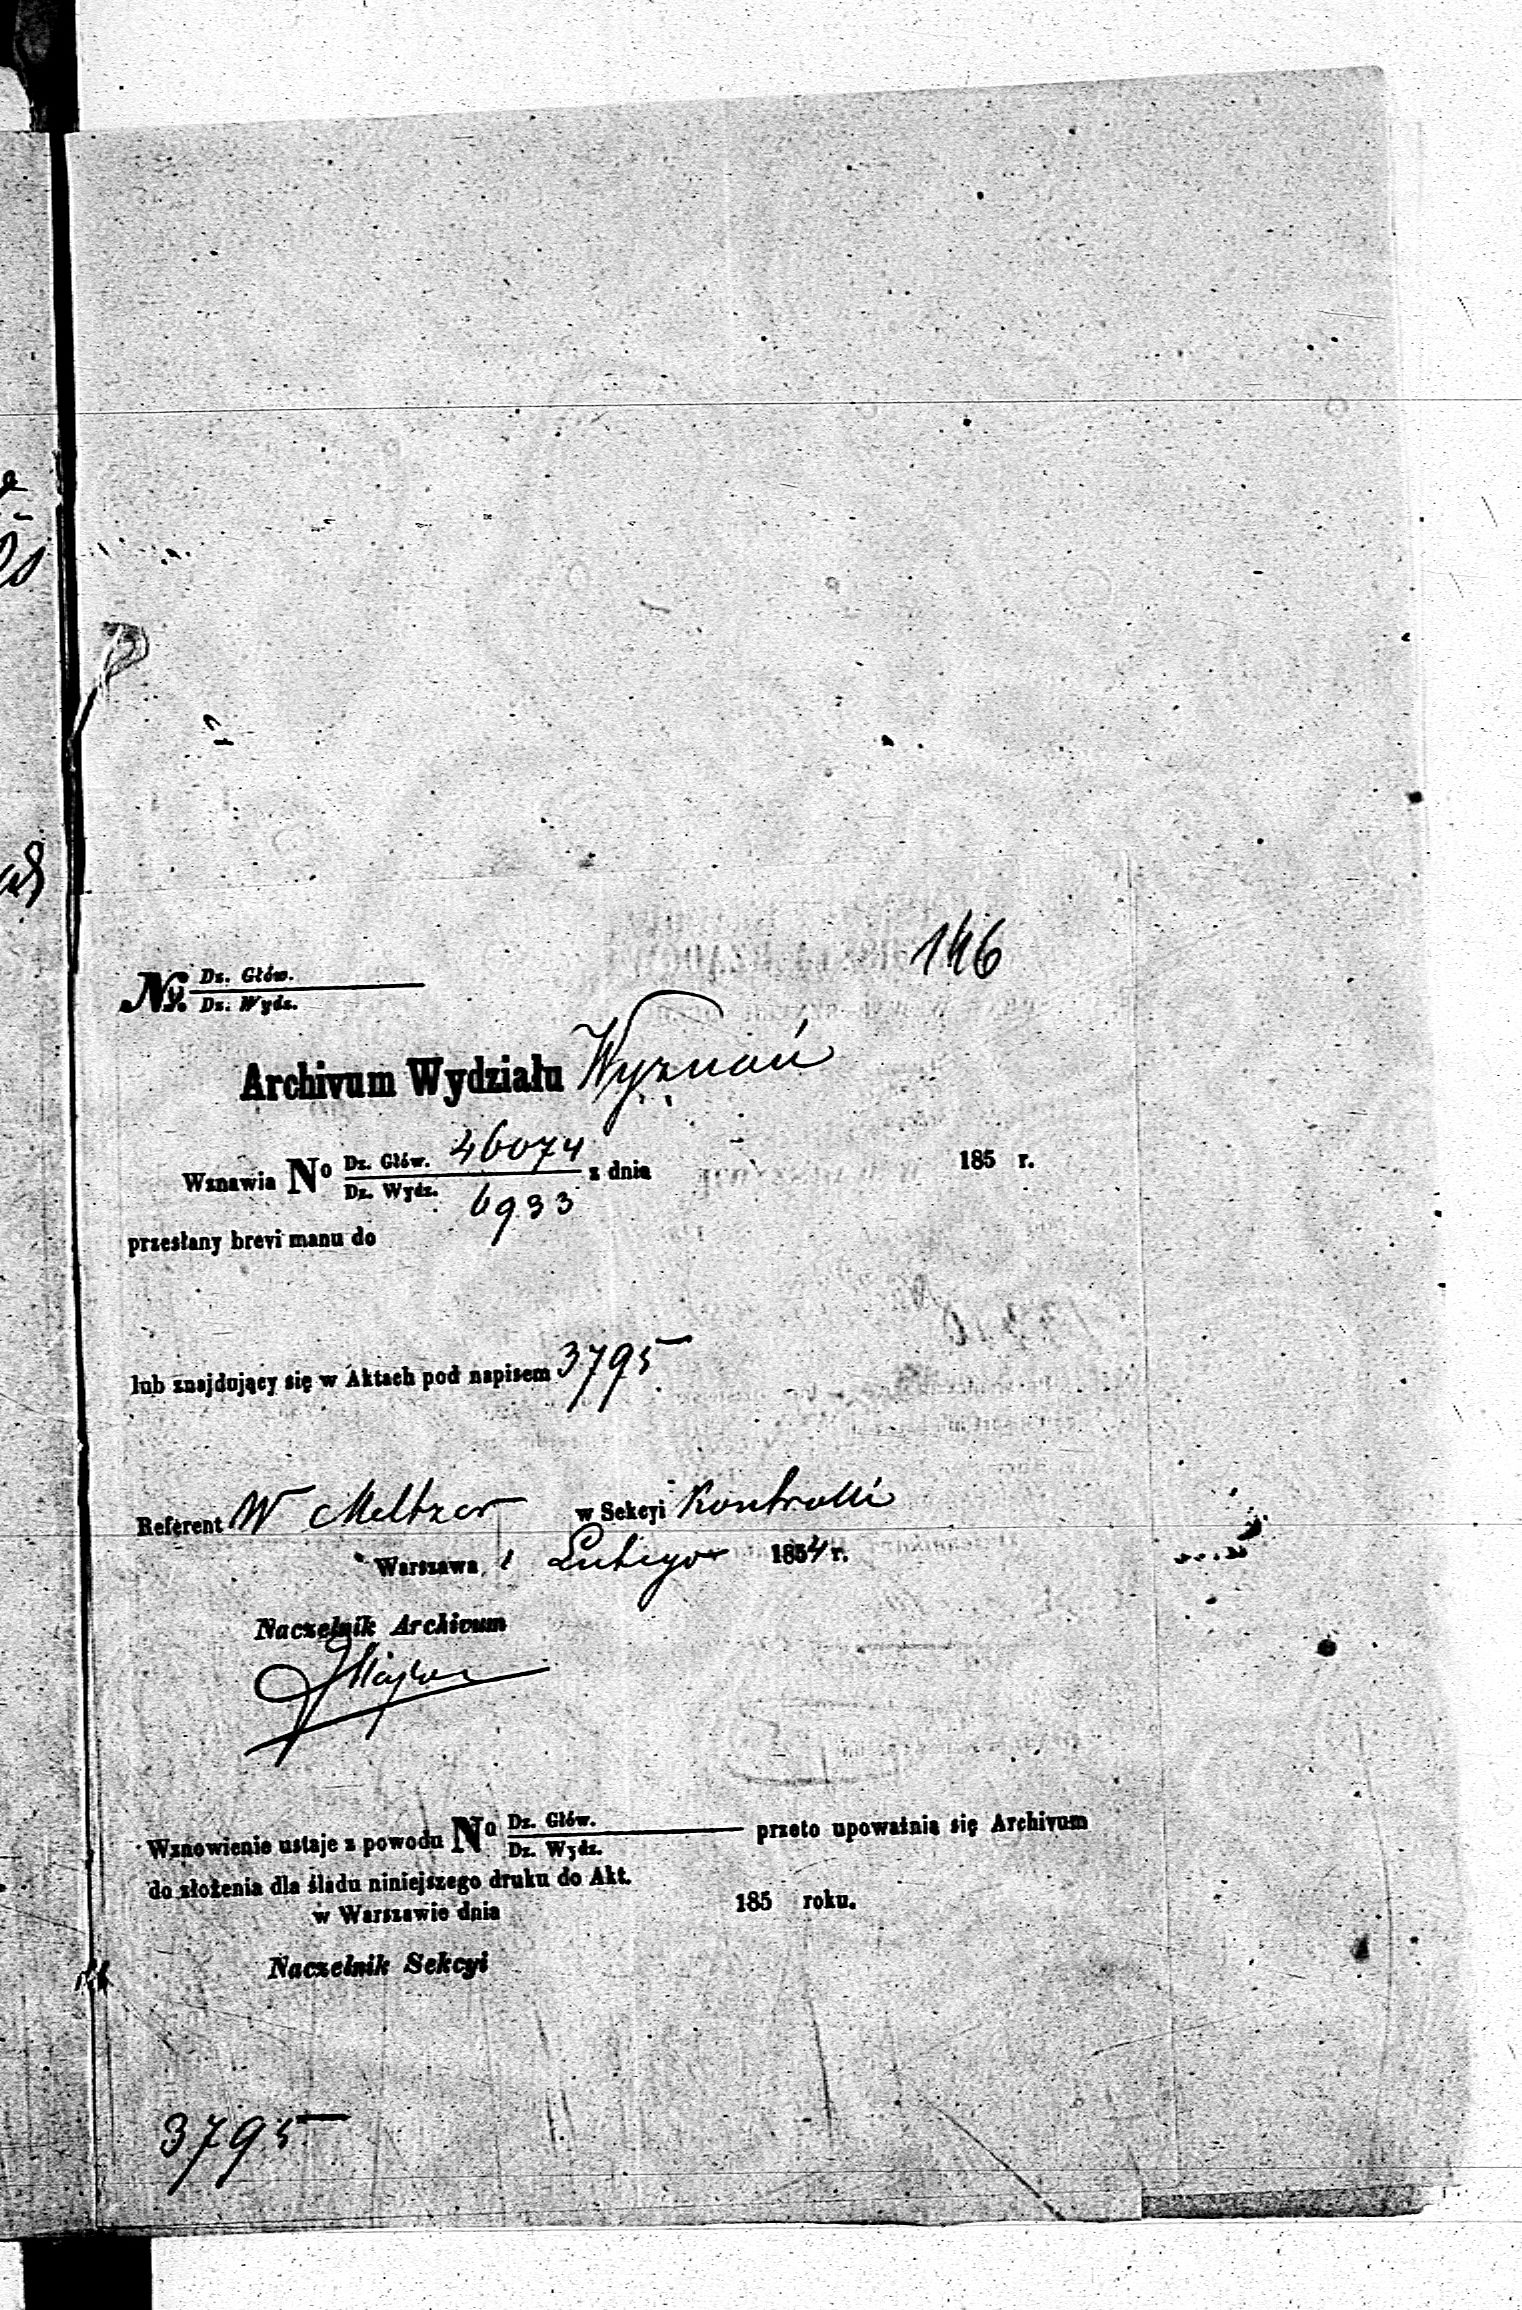 146
№ Dz. Głów.
Dz. Wydz.
Archivum Wydziału Wyznań
Wznawia No Dz. Głów. 46074 z dnia 185 r.
Dz. Wydz. 6933
przesłany brevi manu do
lub znajdujący się w Aktach pod napisem 3795
Referent W Meltzer w Sekcyi Kontrolli
Warszawa 1 Lutego 1854 r.
Naczelnik Archivum
Wznowienie ustaje z powodu No Dz. Głów. przeto upoważnia się Archivum
Dz. Wydz.
do złożenia dla śladu niniejszego druku do Akt.
w Warszawie dnia 185 roku.
Naczelnik Sekcyi
3795